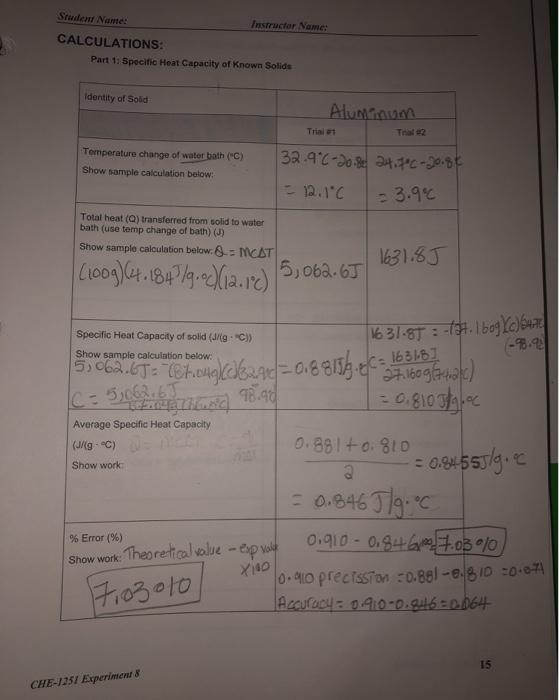 Student Name:
Instructor Name:
CALCULATIONS:
Part 1: Specific Heat Capacity of Known Solids
Identity of Solid
Aluminum
Trial #1 Trial #2
Temperature change of water bath (°C)
Show sample calculation below:
32.9°C-20.8°C 24.7°C-20.8°C
= 12.1°C = 3.9°C
Total heat (Q) transferred from solid to water
bath (use temp change of bath) (J)
Show sample calculation below: Q = MCΔT
(100g)(4.184J/g·°C)(12.1°C) 5,062.6J 1631.8J
Specific Heat Capacity of solid (J/(g · °C))
Show sample calculation below:
1631.8J = -(27.160g)(c)
(-98.9°C)
5,062.6J = -(87.04g)(c)(32.9°C = 0.881J/g·°C C = 1631.8J
98.9°C 27.160g(74.2°C)
C = 5,062.6J
= 0.810 J/g·°C
Average Specific Heat Capacity
(J/(g · °C)
Show work:
0.881 + 0.810
2
= 0.8455J/g·°C
= 0.846 J/g·°C
% Error (%)
Show work: Theoretical value - exp value
x100
7.03%
0.910 - 0.846 x100 7.03%
0.910 precission = 0.881-0.810 = 0.071
Accuracy = 0.910-0.846 = 0.064
15
CHE-1251 Experiment 8